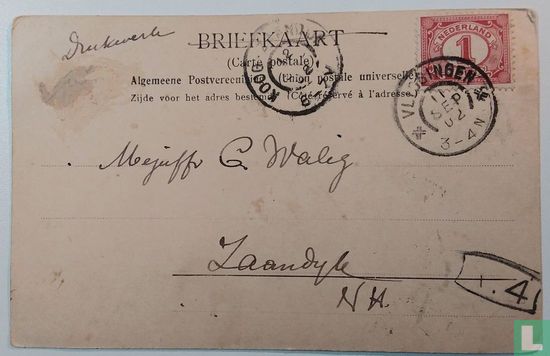 Drukwerk
BRIEFKAART
(Carte postale)
Algemeene Postvereeniging (Union postale universelle)
Zijde voor het adres bestemd. (Côté réservé à l'adresse.
NEDERLAND
1
VLISSINGEN
SEP
02
3-4N
KOOG
Mejuffr C. Walig
Zaandyk
N.H.
4
catawiki